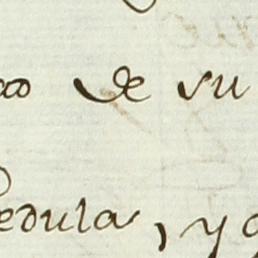 de su
edula, y